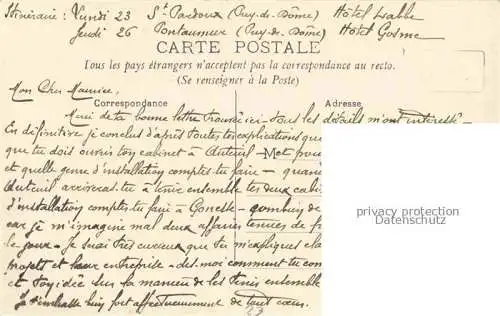 Itinéraire : Lundi 23 St Pardoux (Puy-de-Dôme) Hôtel Labbe
Jeudi 26 Pontaumur (Puy-de-Dôme) Hôtel Gosme
CARTE POSTALE
Tous les pays étrangers n'acceptent pas la correspondance au recto.
(Se renseigner à la Poste)
Mon Cher Maurice,
Correspondance Adresse
Merci de ta bonne lettre trouvée ici - tous les détails m'ont intéressé -
En définitive je conclus d'après toutes tes explications que
que tu dois ouvrir ton cabinet à Auteuil - Met pour
et quelle genre d'installation comptes-tu faire - quand
Auteuil arriveras-tu à tenir ensemble tes deux cabi
d'installation comptes-tu faire à Gonesse - combien de
car je m'imagine mal deux affaires tenues de f
le jour - Je suis très curieux que tu m'expliques cla
projets et leur entreprise - dis-moi comment tu co
et ton idée sur la manière de les tenir ensemble
Je t'embrasse bien fort affectueusement de tout cœur.
privacy protection
Datenschutz